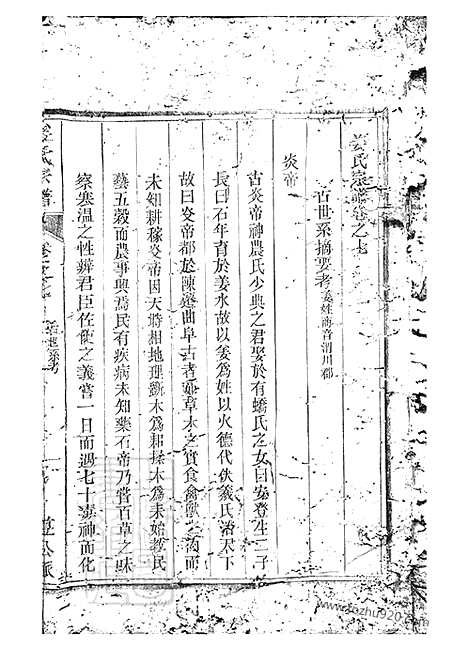 姜氏宗譜卷之七
古世系摘要考姜姓商音渭川郡
炎帝
古炎帝神農氏少典之君娶於有蟜氏之女曰安登生二子
長曰石年育於姜水故以姜爲姓以火德代伏羲氏治天下
故曰炎帝都於陳遷曲阜古者茹草木之實食禽獸之肉而
未知耕稼炎帝因天時相地理斲木爲耜揉木爲耒始教民
藝五穀而農事興焉民有疾病未知藥石帝乃嘗百草之味
察寒温之性辨君臣佐使之義嘗一日而遇七十毒神而化
姜氏宗譜
卷之七
古世系考
www.jiazhu920.com